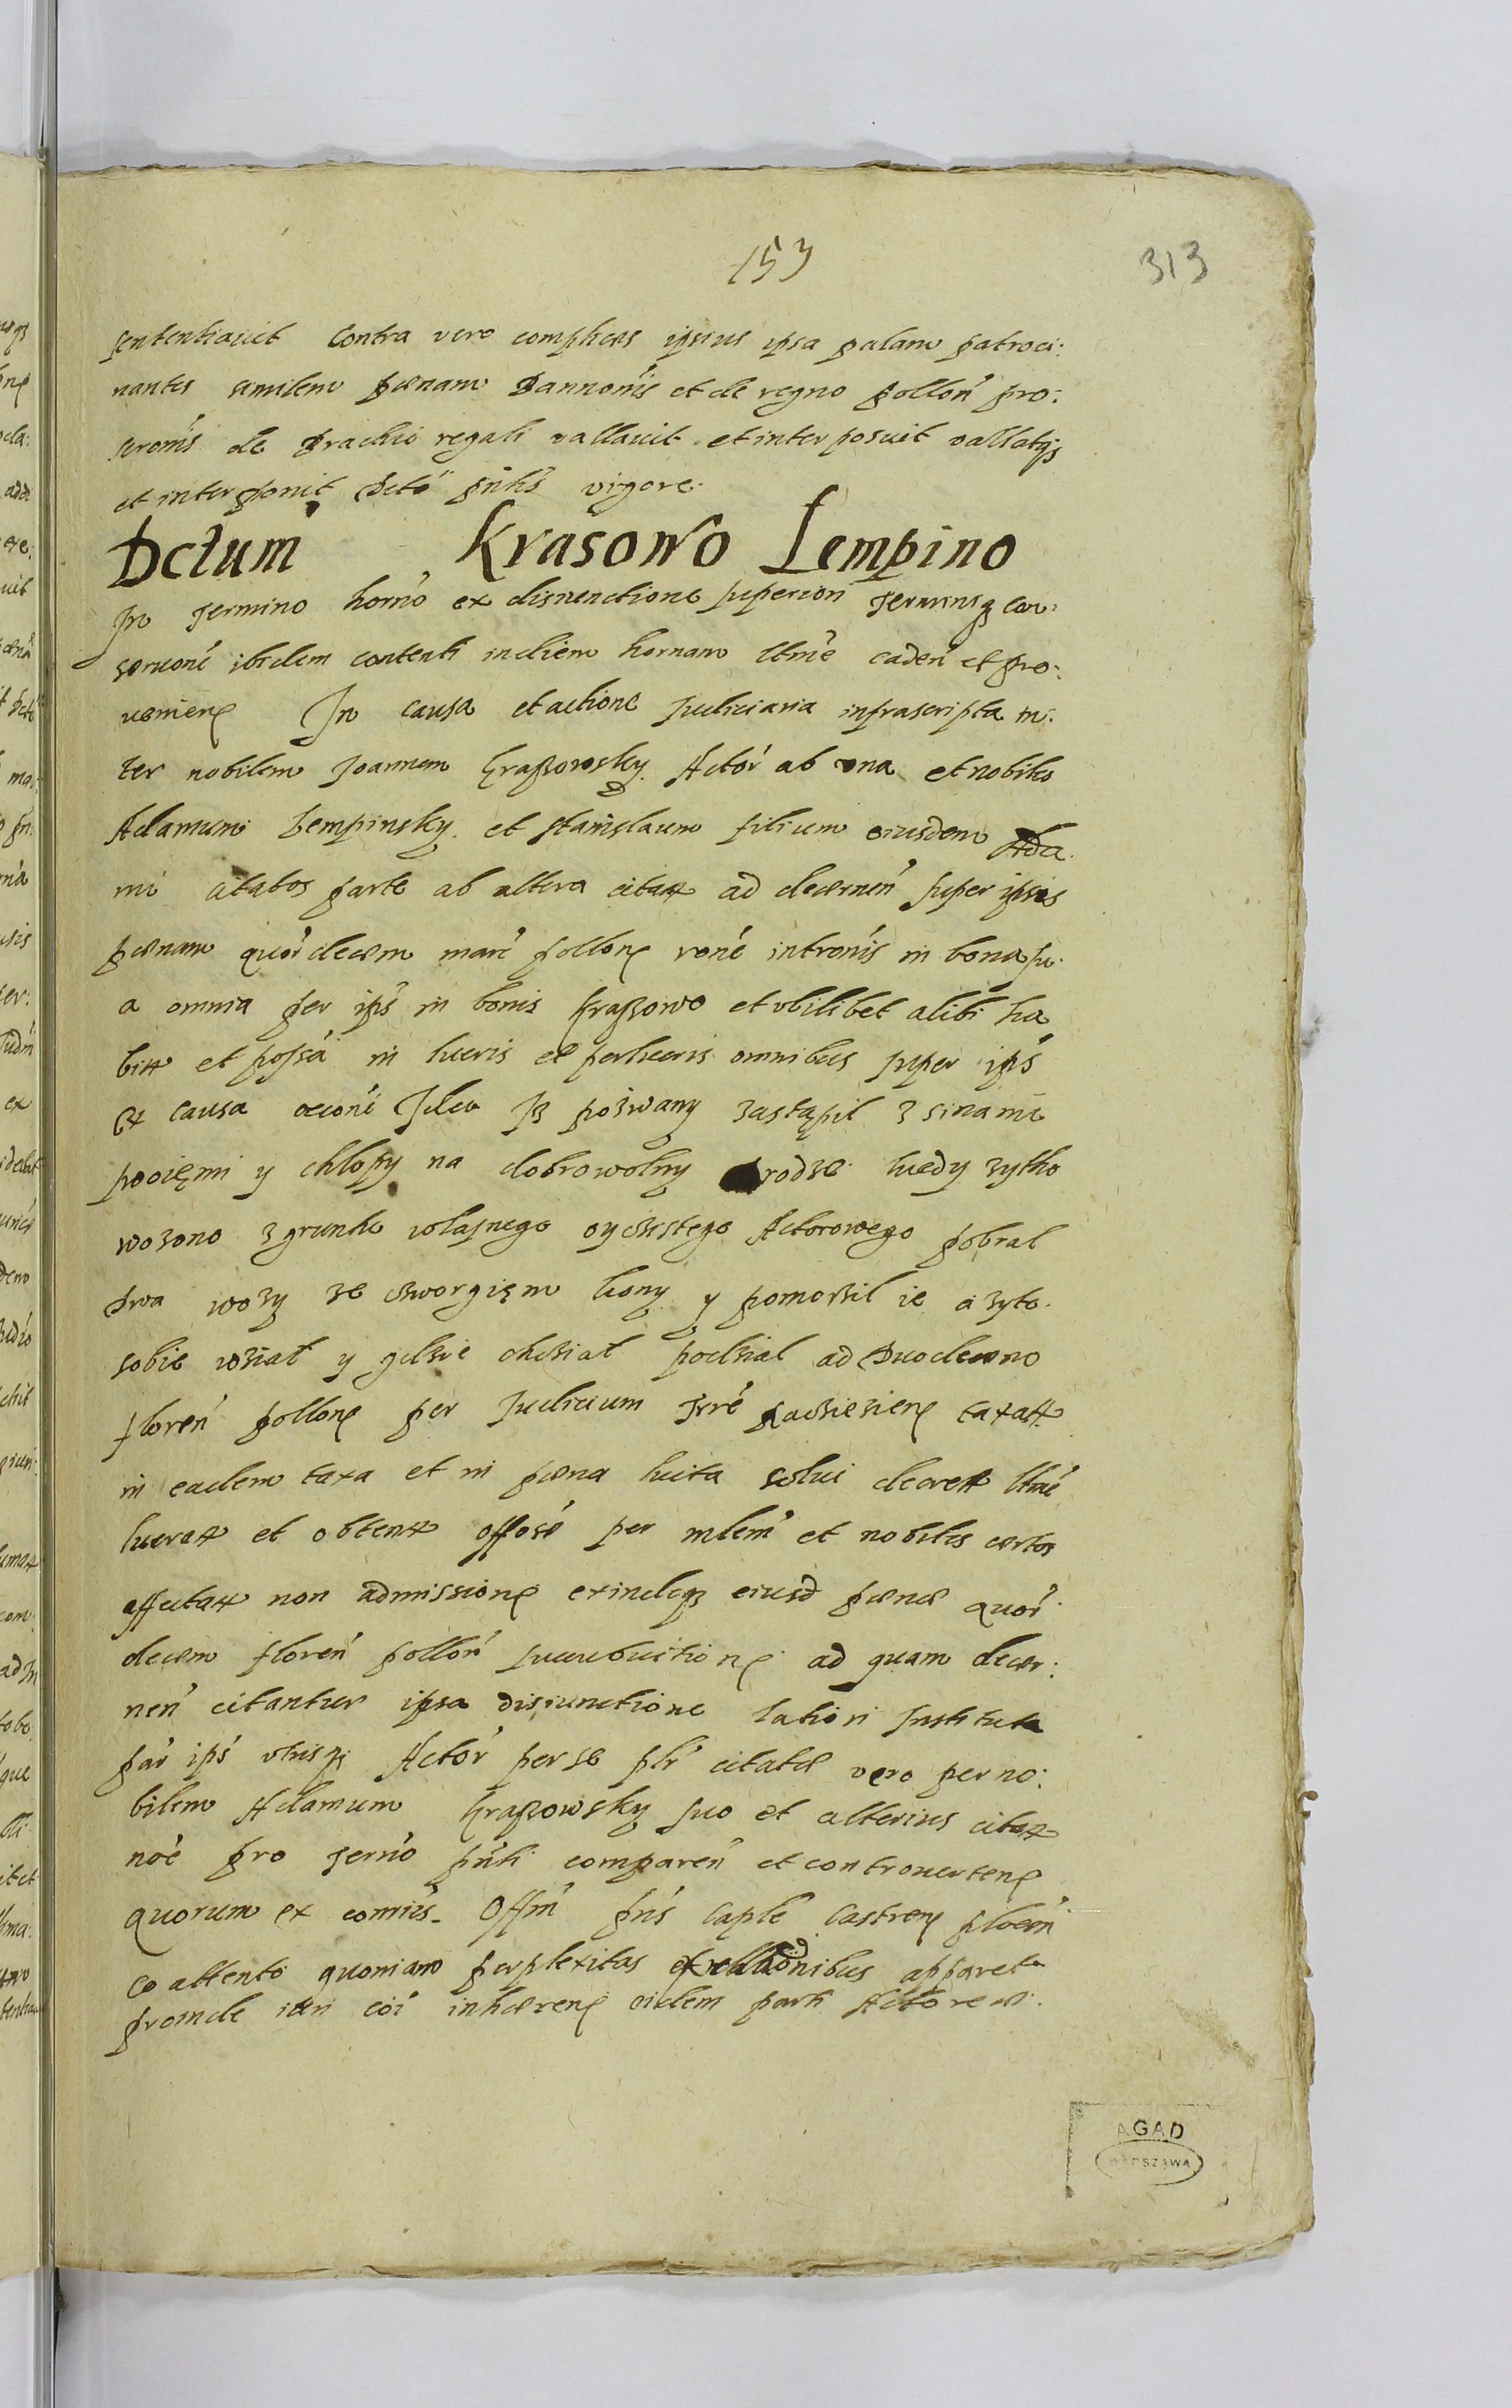 153
313
sententiavit Contra vero complices ipsius ipsa palam patroci:
nantes similem pœnam Bannonis et de regno pollon pro:
de Brachio regali vallavit et interposuit vallatqȝ
et interponit Dcto pntis vigore.
Dctum Krasowo Lempino
In Termino horno ex disiunctione superiori
ibidem contenti in diem hornam ltme caden et pro:
venien In causa et actione Judiciaria infrascripta in:
ter nobilem Joannem Kraszowsky Actor ab una et nobiles
Adamum Lempinsky et Stanislaum filium eiusdem Ada
mi citatos parte ab altera citat ad decernen super ipsis
pœnam quor decem marc pollon rone intronis in bona su:
a omnia per ips in bonis Kraszowo et ubilibet alibi ha
bit et possa in lucris et perlucris omnibus super ips
ex causa Idea Jz pozwany zastąpil z sinami
swoięmi y chlopy na dobrowolny drodze kiedy zytho
wozono z grunthu wlasnego oyczistego Actorowego pobral
dwa wozy ze czworgięm kony y pomorzil ie a zyto
sobie wziat y gdzie chcziat podzial ad Duodecim
floren pollon per Judicium Trre taxatt
in eadem taxa et in pœna luita solui decrett ltme
lucratt et obtent offose per mlem et nobiles certos
effectatt non admissione exindeqȝ eiusd pœnæ quor
decem floren pollon succubuitione ad quam decer:
nen citantur ipsa disiunctione latiori Instituta
par ips utrisqȝ Actor per se plr citatæ vero per no:
bilem Adamum Kraszowsky suo et alterius citat
noe pro Termo pnti comparen et controverten
quorum ex comis Offm pns Caple Castren plocen
eo attento quoniam perplexitas ex relationibus apparet
proinde iuri coi inhæren eidem parti Actoreæ
AGAD
WARSZAWA